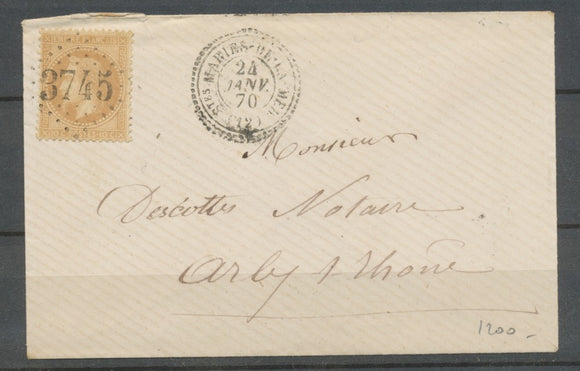 3745
STES MARIES-DE-LA-MER
24
JANV.
70
(12)
Monsieur
Descottes Notaire
Arles s/ Rhône
1200 -